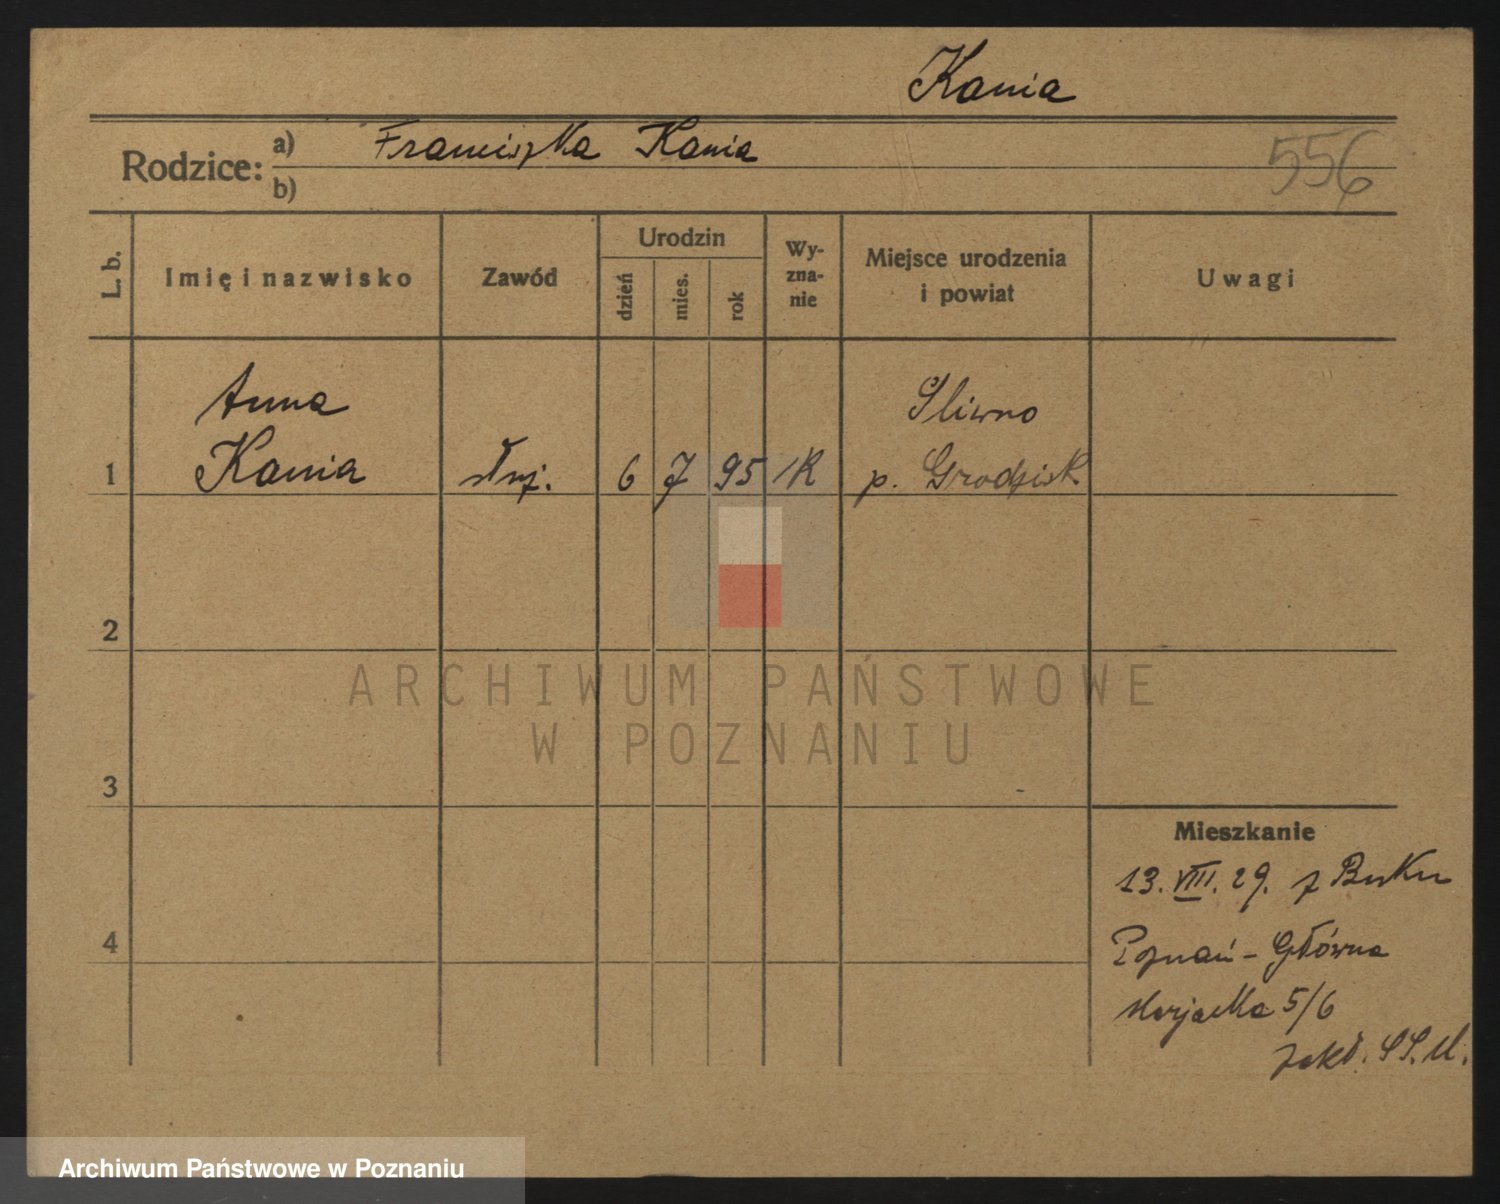 Kania
Rodzice:
a) Franciszka Kania
b)
556
L. b.
Imię i nazwisko
Zawód
Urodzin
dzień
mies.
rok
Wy-
zna-
nie
Miejsce urodzenia
i powiat
Uwagi
Anna
Śliwno
1 Kania służ. 6 7 95 rK p. Grodzisk
2
3
4
Mieszkanie
13. VIII. 29. z Buku
Poznań - Główna
Marjacka 5/6
zakł. SS. M.
ARCHIWUM PAŃSTWOWE
W POZNANIU
Archiwum Państwowe w Poznaniu